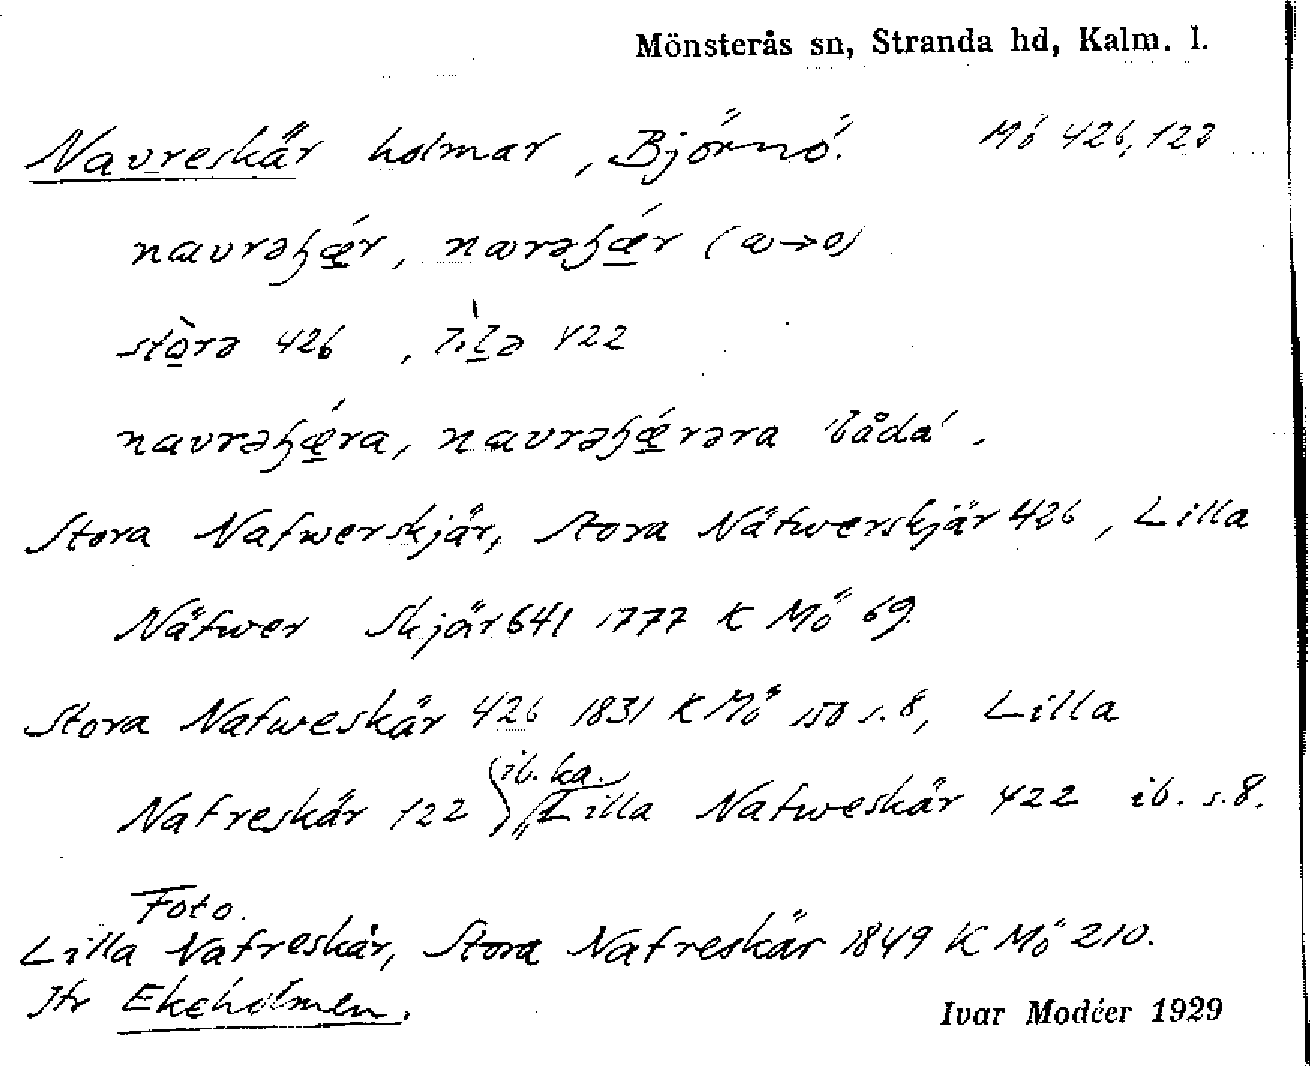 Mönsterås sn, Stranda hd, Kalm. l.
Navreskär holmar, Björnö. Mö 426, 122
navrəɧǽ̲r, nɑvrəɧǽ̲r
stò̲rə 426, lìlə 422
navrəɧǽ̲ra, navrəɧǽ̲rəra 'båda'.
Stora Nafwerskjär, Stora Näfwerskjär 426, Lilla
Näfwer Skjär 641 1777 K Mö 69.
Stora Nafweskär 426 1831 K Mö 150 s. 8, Lilla
Nafreskär 122 ib. ka. Lilla Nafweskär 422 ib. s. 8.
Foto.
Lilla Nafreskär, Stora Nafreskär 1849 K Mö 210.
Jfr Ekeholmen.
Ivar Modéer 1929